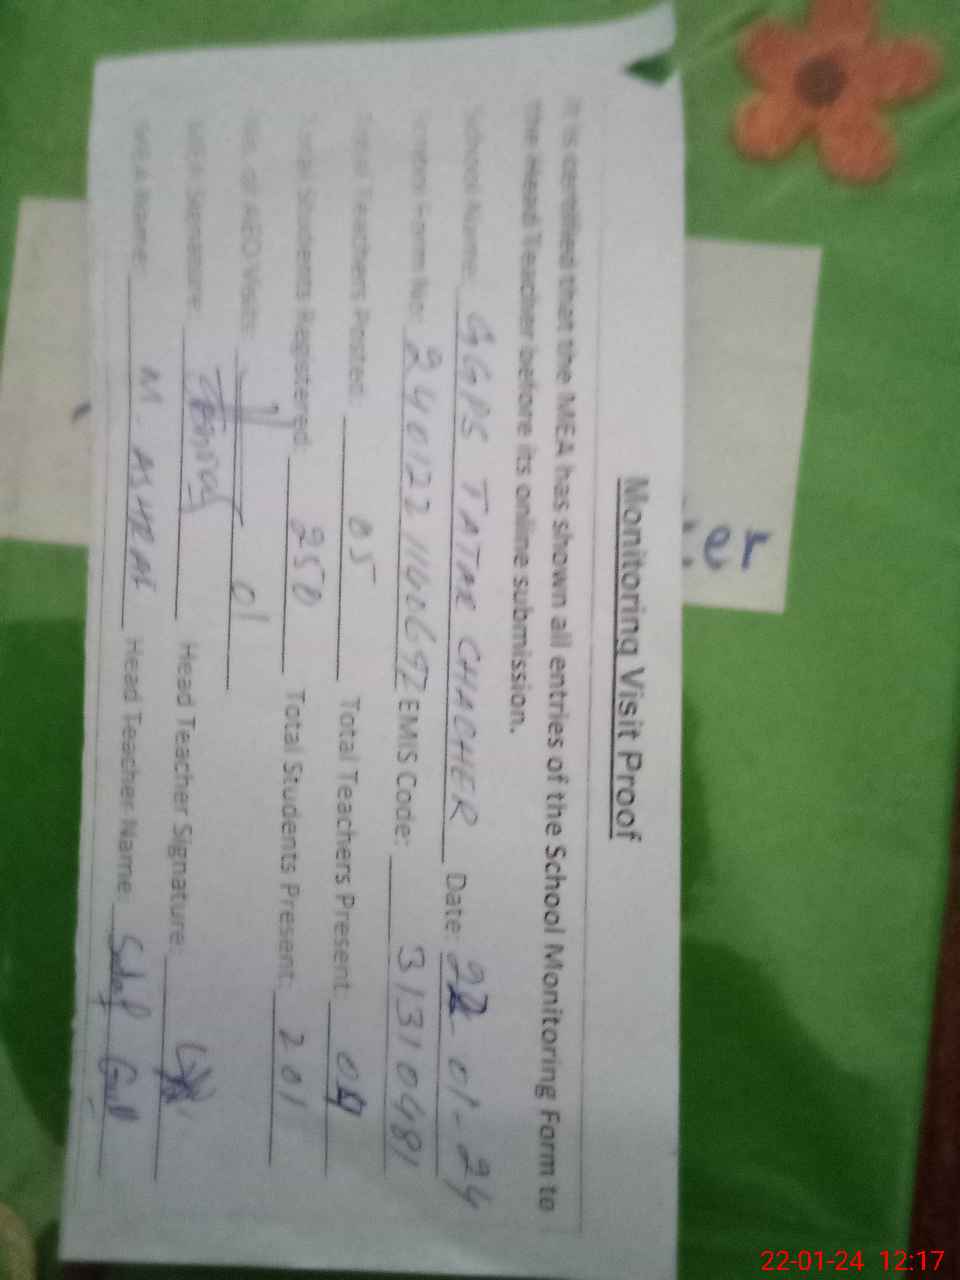 Monitoring Visit Proof
It is certified that the MEA has shown all entries of the School Monitoring Form to
the Head Teacher before its online submission.
School Name: GGPS TATAR CHACHER Date: 22-01-24
Form No: 240122 1160692 EMIS Code: 31310481
Total Teachers Posted: 05 Total Teachers Present: 04
Total Students Registered: 250 Total Students Present: 201
No. of AEO Visits: 01
MEA Signature: Head Teacher Signature:
MEA Name: M. ASHRAF Head Teacher Name: Gull
22-01-24 12:17